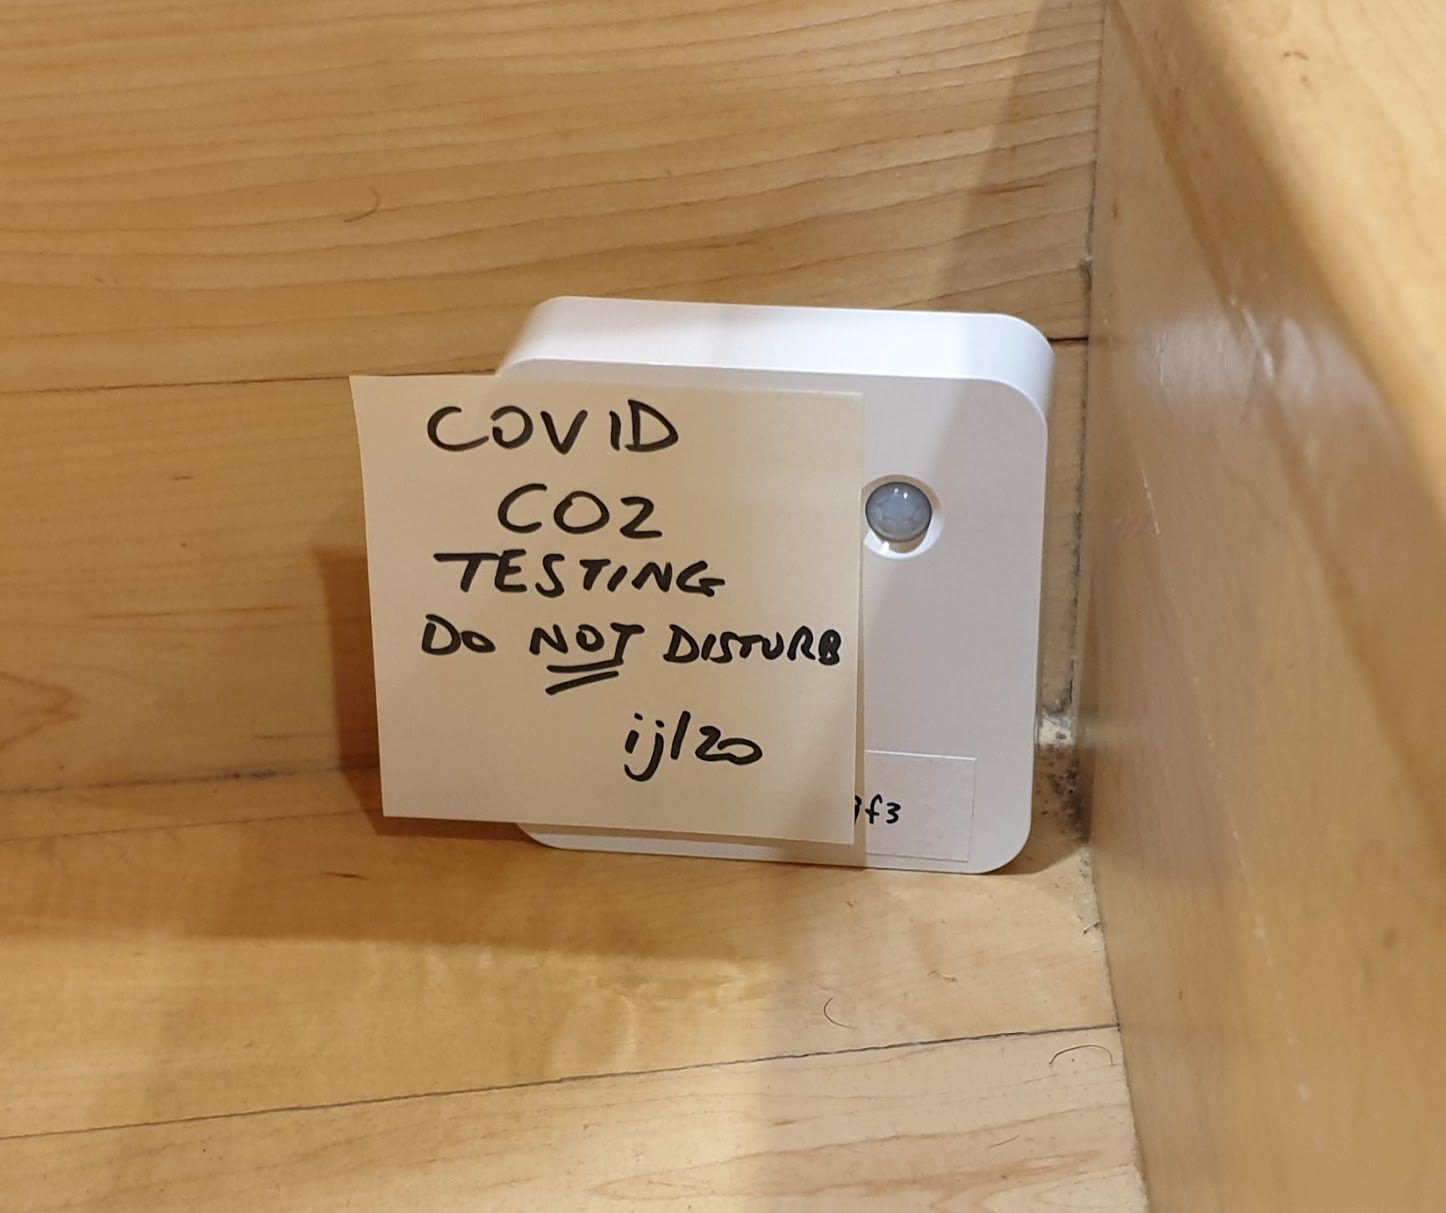 COVID
CO2
TESTING
DO NOT DISTURB
ijl20
f3